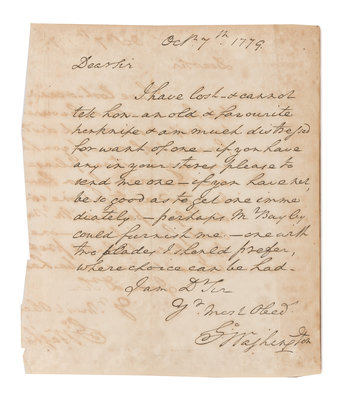 Octr. 7th. 1779.
Dear Sir
I have lost & cannot
tell how - an old & favourite
penknife & am much distressed
for want of one - if you have
any in your stores please to
send me one - if you have not,
be so good as to get one imme
diately. - perhaps Mr. Bayley
could furnish me. - one with
two blades I should prefer,
where choice can be had -
I am Dr. Sir
Yr. most Obed
Go. Washington